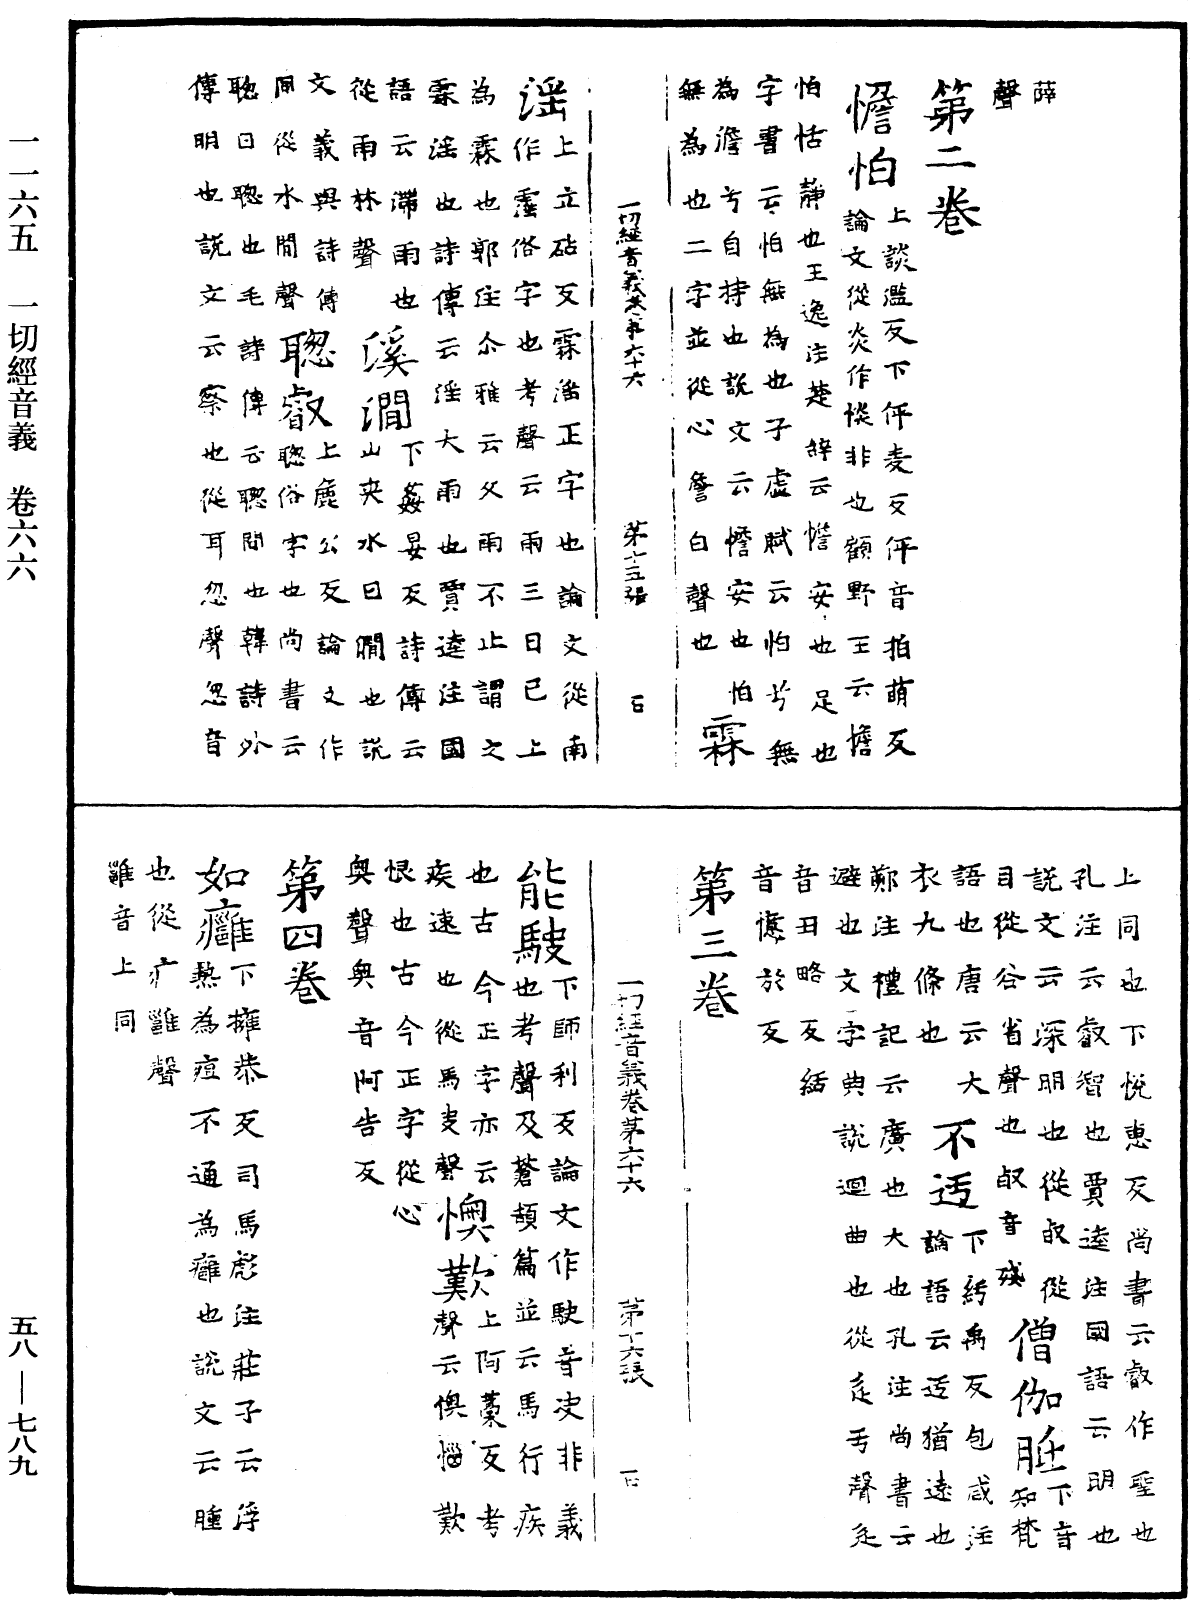 一一六五　一切經音義　卷六六
五八—七八九
薜
聲
第二卷
憺怕
上談濫反下伻麦反伻音拍萌反
論文從炎作惔非也顧野王云憺
怕恬靜也王逸注楚辞云憺安也足也
字書云怕無為也子虛賦云怕兮無
為澹兮自持也說文云憺安也怕
無為也二字並從心詹白聲也
霖
一切經音義卷第六十六　第十五張
淫
上立砧反霖滛正字也論文從南
作霪俗字也考聲云雨三日已上
為霖也郭注尒雅云久雨不止謂之
霖滛也詩傳云滛大雨也賈逵注國
語云滯雨也
從雨林聲
溪澗
下姦晏反詩傳云
山夾水曰澗也說
文義與詩傳
同從水閒聲
聰叡
上麁公反論文作
聦俗字也尚書云
聦曰聰也毛詩傳云聦聞也韓詩外
傳明也說文云察也從耳忽聲忽音
上同也下悅惠反尚書云叡作聖也
孔注云叡智也賈逵注國語云明也
說文云深明也從㕡從
目從谷省聲也㕡音殘
僧伽胝
下音
知梵
語也唐云大
衣九條也
不迃
下紆禹反包咸注
論語云迃猶遠也
鄭注禮記云廣也大也孔注尚書云
避也文字典說迴曲也從辵亐聲辵
音丑略反紆
音憶於反
第三卷
一切經音義卷第六十六　第十六張
能駛
下師利反論文作駛音决非義
也考聲及蒼頡篇並云馬行疾
也古今正字亦云
疾速也從馬吏聲
懊歎
上阿藁反考
聲云懊惱歎
恨也古今正字從心
奧聲奧音阿告反
第四卷
如癰
下擁恭反司馬彪注莊子云浮
熱為疽不通為癰也說文云腫
也從疒雝聲
雝音上同